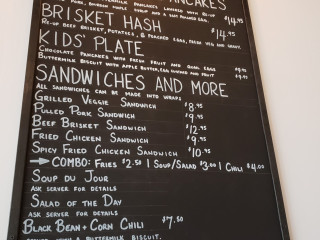 PANCAKES
$14.95
BRISKET HASH
RE-UP BEEF BRISKET, POTATOES, & POACHED EGGS, $14.95
KIDS' PLATE
CHOCOLATE PANCAKES WITH FRESH FRUIT AND QUAIL EGGS
BUTTERMILK BISCUIT WITH APPLE BUTTER, EGG AND FRUIT
SANDWICHES AND MORE
ALL SANDWICHES CAN BE MADE INTO WRAPS
GRILLED VEGGIE SANDWICH $8.95
PULLED PORK SANDWICH $9.95
BEEF BRISKET SANDWICH $12.95
FRIED CHICKEN SANDWICH $9.95
SPICY FRIED CHICKEN SANDWICH $10.95
→ COMBO: FRIES $2.50 | SOUP/SALAD $3.00 | CHILI $4.00
SOUP DU JOUR
ASK SERVER FOR DETAILS
SALAD OF THE DAY
ASK SERVER FOR DETAILS
BLACK BEAN + CORN CHILI $7.50
A BUTTERMILK BISCUIT.